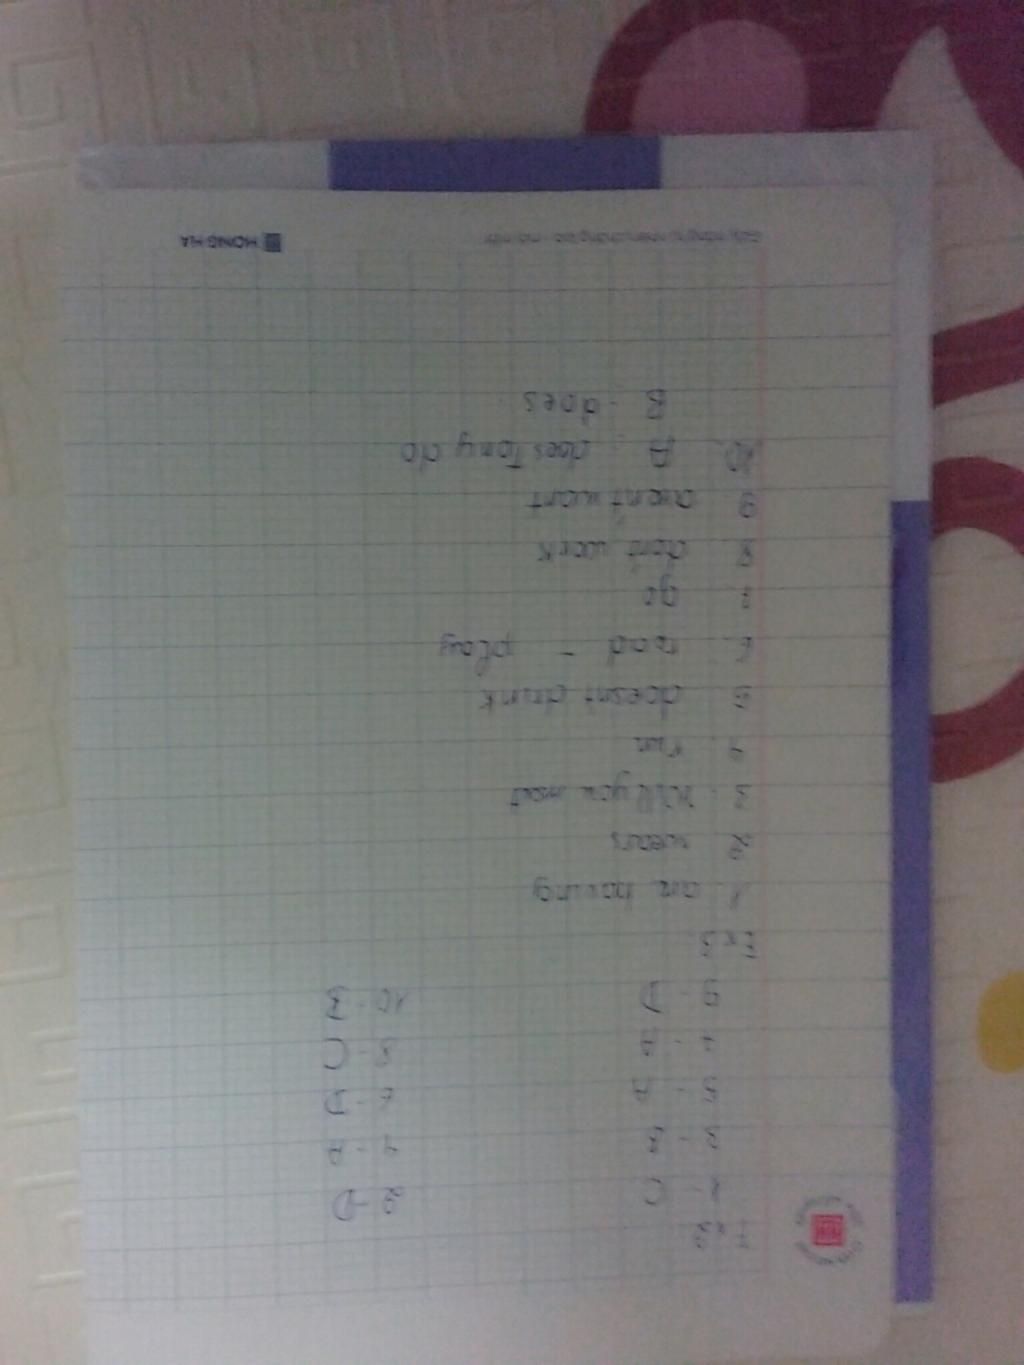 Ex2
1 - C 2 - D
3 - B 4 - B
5 - A 6 - D
7 - B 8 - C
9 - D 10 - B
Ex3
1. are having
2. wears
3. Will you meet
4. run
5. doesn't drink
6. read - play
7. go
8. don't work
9. aren't want
10. A: does Tony do
B - does
HONG HA